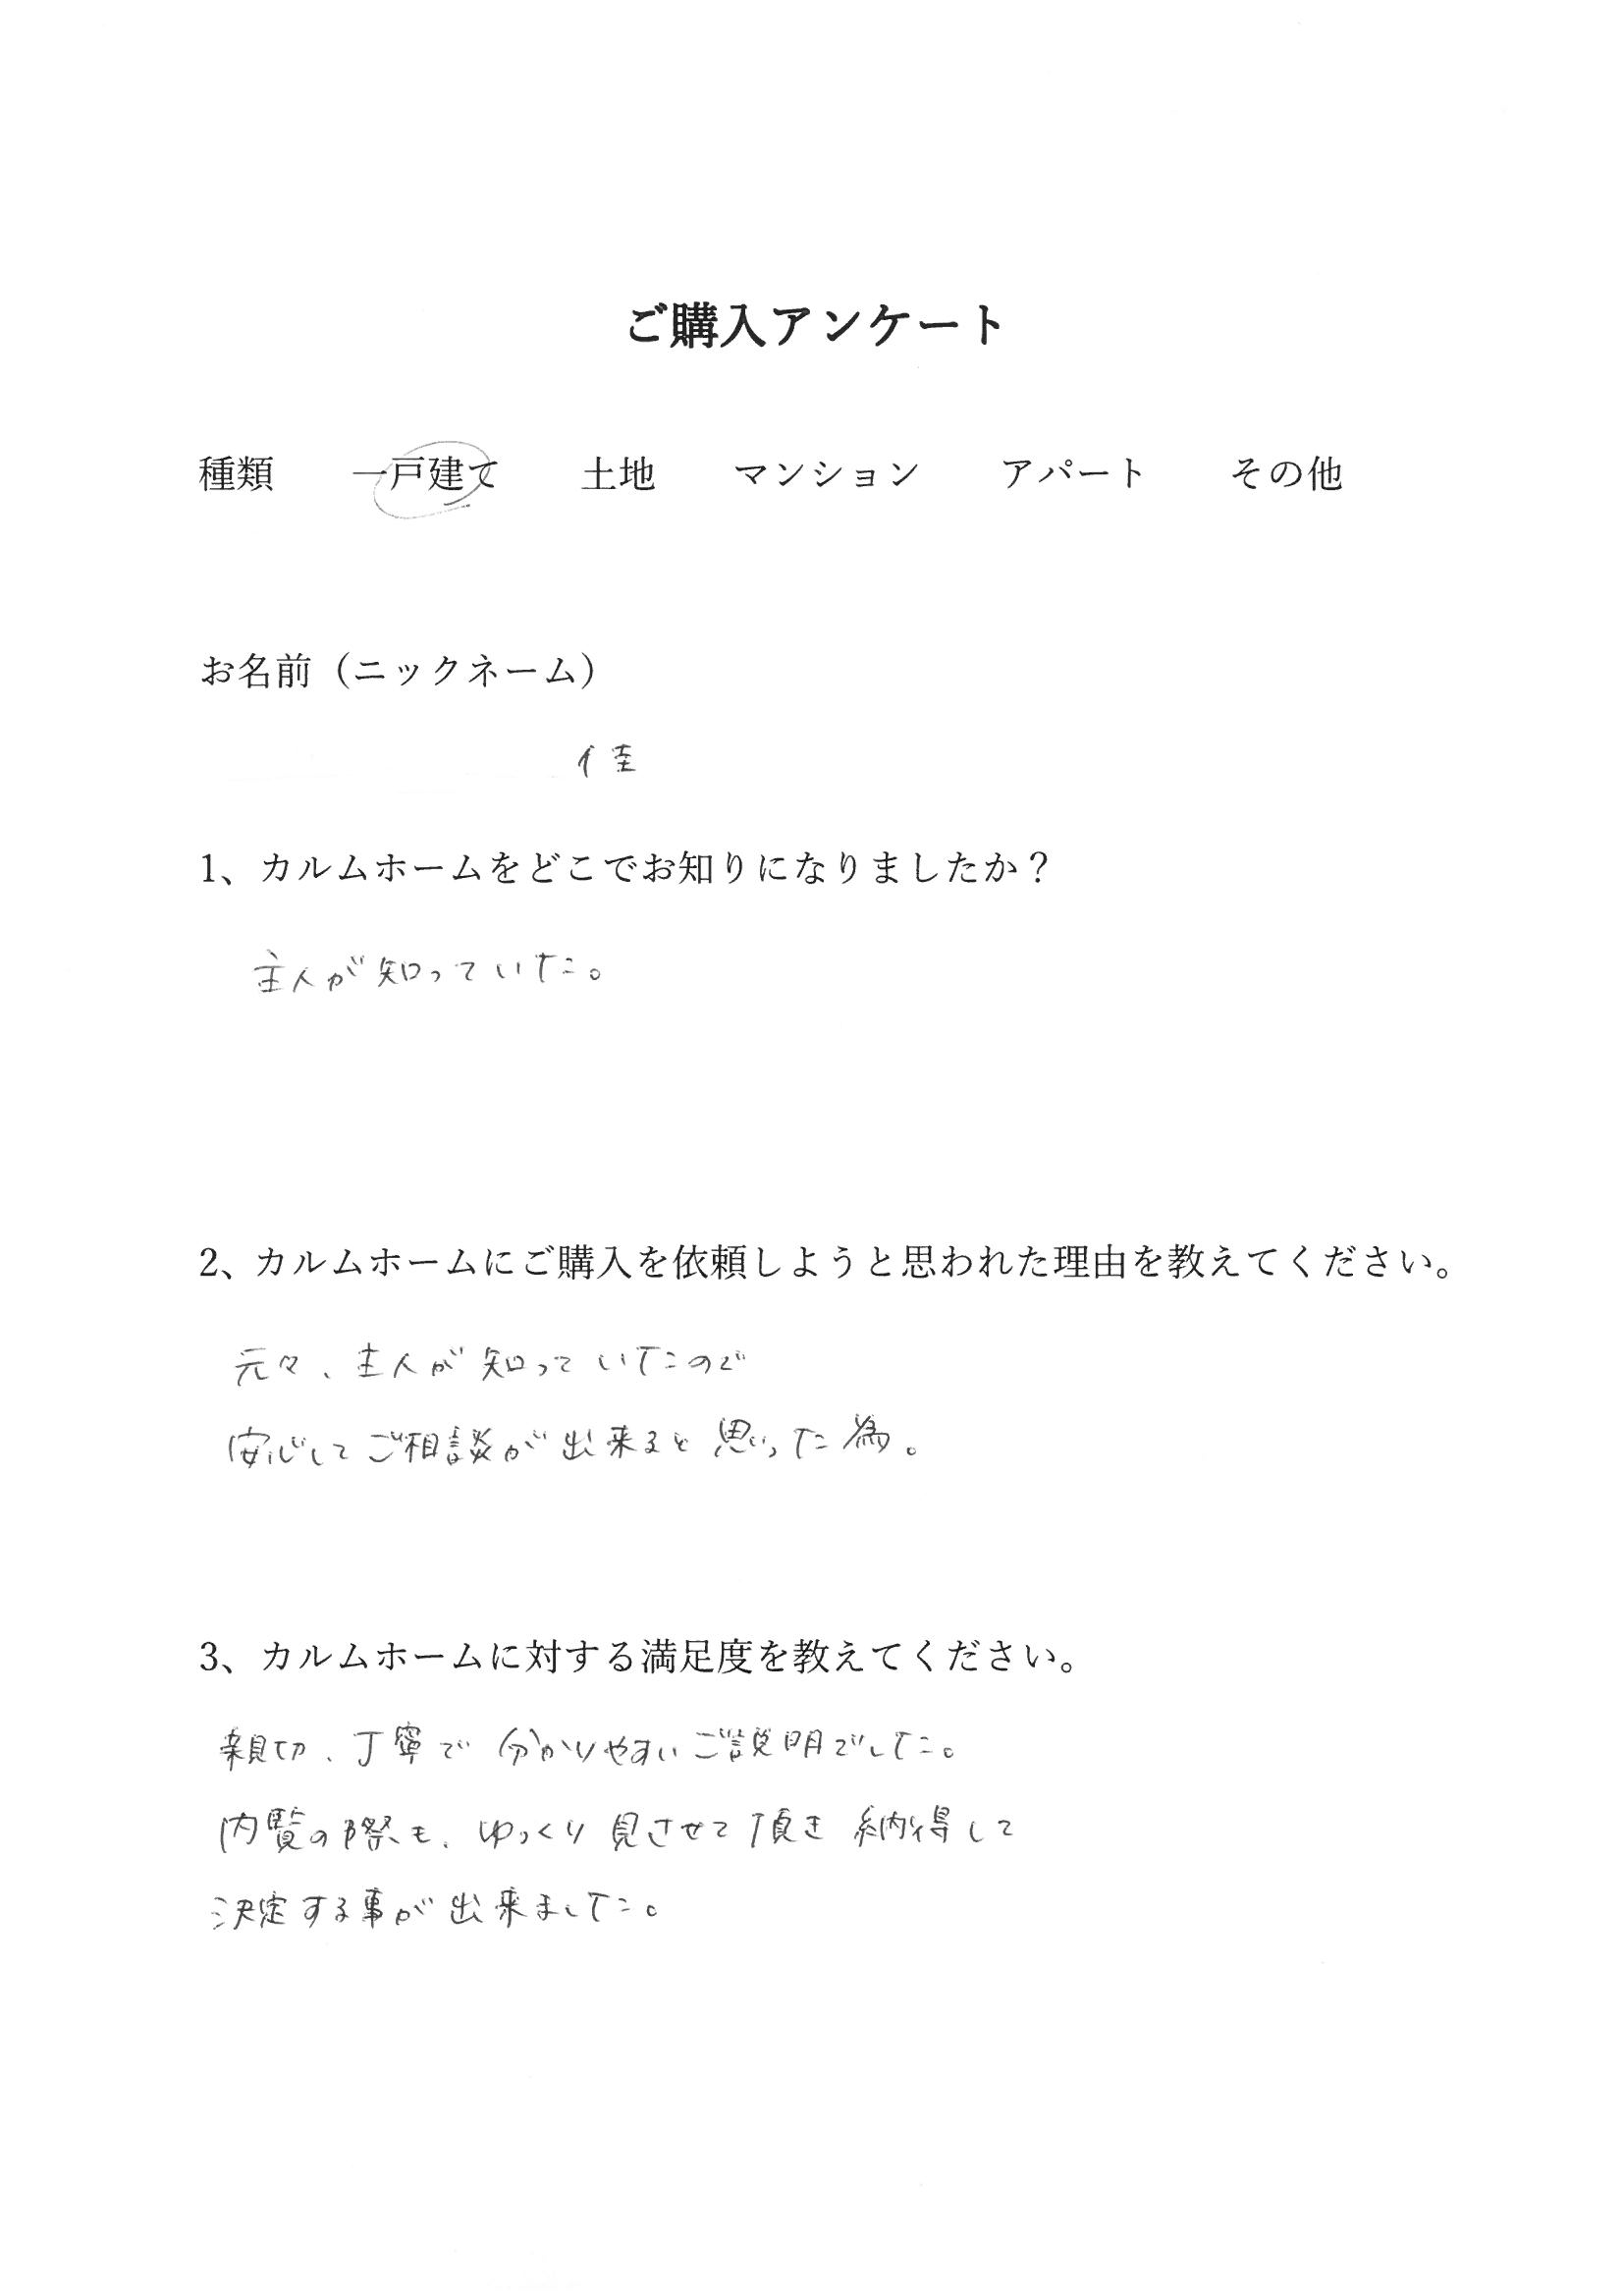 ご購入アンケート
種類 一戸建て 土地 マンション アパート その他
お名前（ニックネーム）
佳
1、カルムホームをどこでお知りになりましたか？
主人が知っていた。
2、カルムホームにご購入を依頼しようと思われた理由を教えてください。
元々、主人が知っていたので
安心してご相談が出来ると思った為。
3、カルムホームに対する満足度を教えてください。
親切、丁寧で分かりやすいご説明でした。
内覧の際も、ゆっくり見させて頂き納得して
決定する事が出来ました。